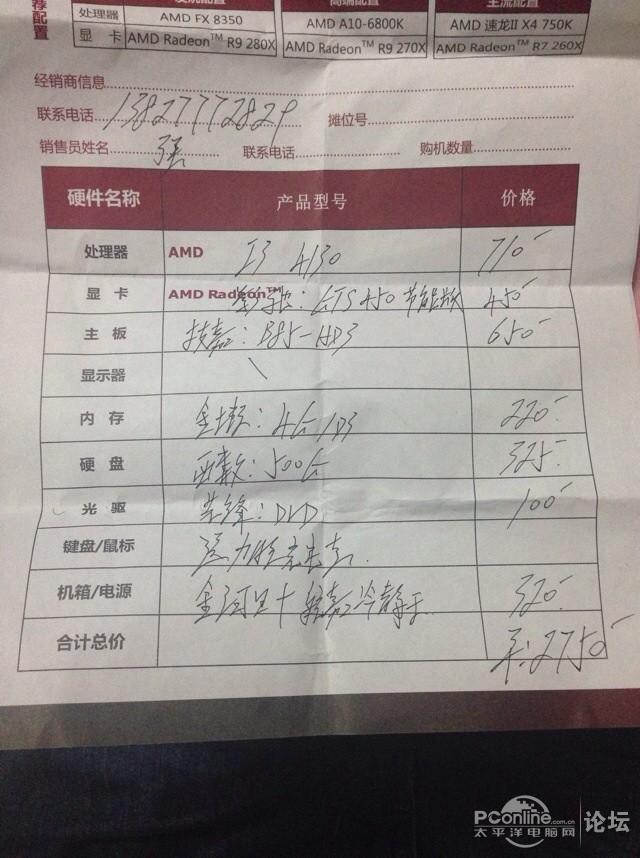 荐配置
处理器 AMD FX 8350 AMD A10-6800K AMD 速龙II X4 750K
显 卡 AMD Radeon™ R9 280X AMD Radeon™ R9 270X AMD Radeon™ R7 260X
经销商信息
联系电话 13827772829 摊位号
销售员姓名 张 联系电话 购机数量
硬件名称 产品型号 价格
处理器 AMD I3 4130 710
显 卡 AMD Radeon™ 影驰：GTS450 节能版 450
主 板 技嘉：B85-HD3 650
显示器 \
内 存 金士顿：4G/D3 220
硬 盘 西数：500G 325
光 驱 先锋：DVD 100
键盘/鼠标
机箱/电源 金河田+ 冷静王 320
合计总价 2750
PConline.com.cn
太平洋电脑网 论坛